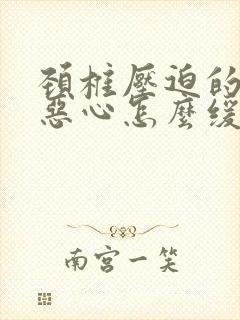 頚椎壓迫的
惡心怎麼緩
南宫一笑